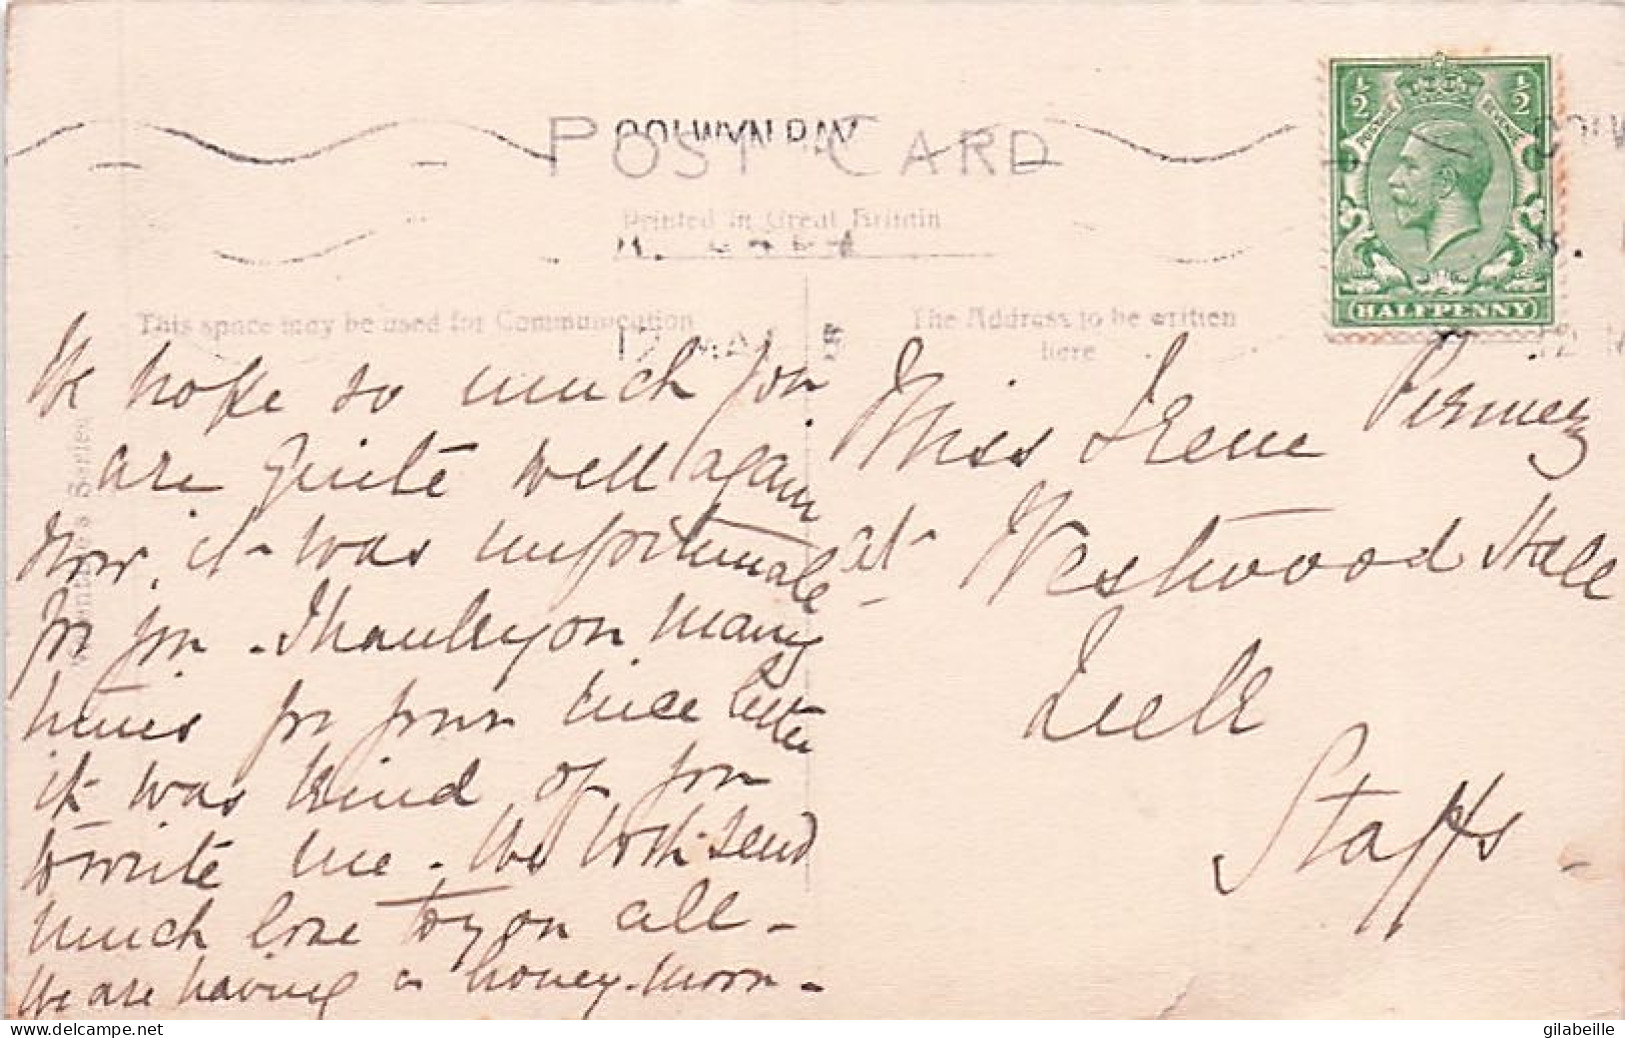 COLWYN BAY
POST CARD
Printed in Great Britain
This space may be used for Communication
The Address to be written
here
12 MAY
½ ½
POSTAGE REVENUE
HALFPENNY
We hope so much you
are quite well again
now, it was unfortunate
for you. Thank you many
times for your nice letter
it was kind of you
to write me. We both send
much love to you all -
We are having a honey-moon -
Miss Irene Pirmez
at Westwood Hall
Leek
Staffs -
Series
www.delcampe.net
gilabeille